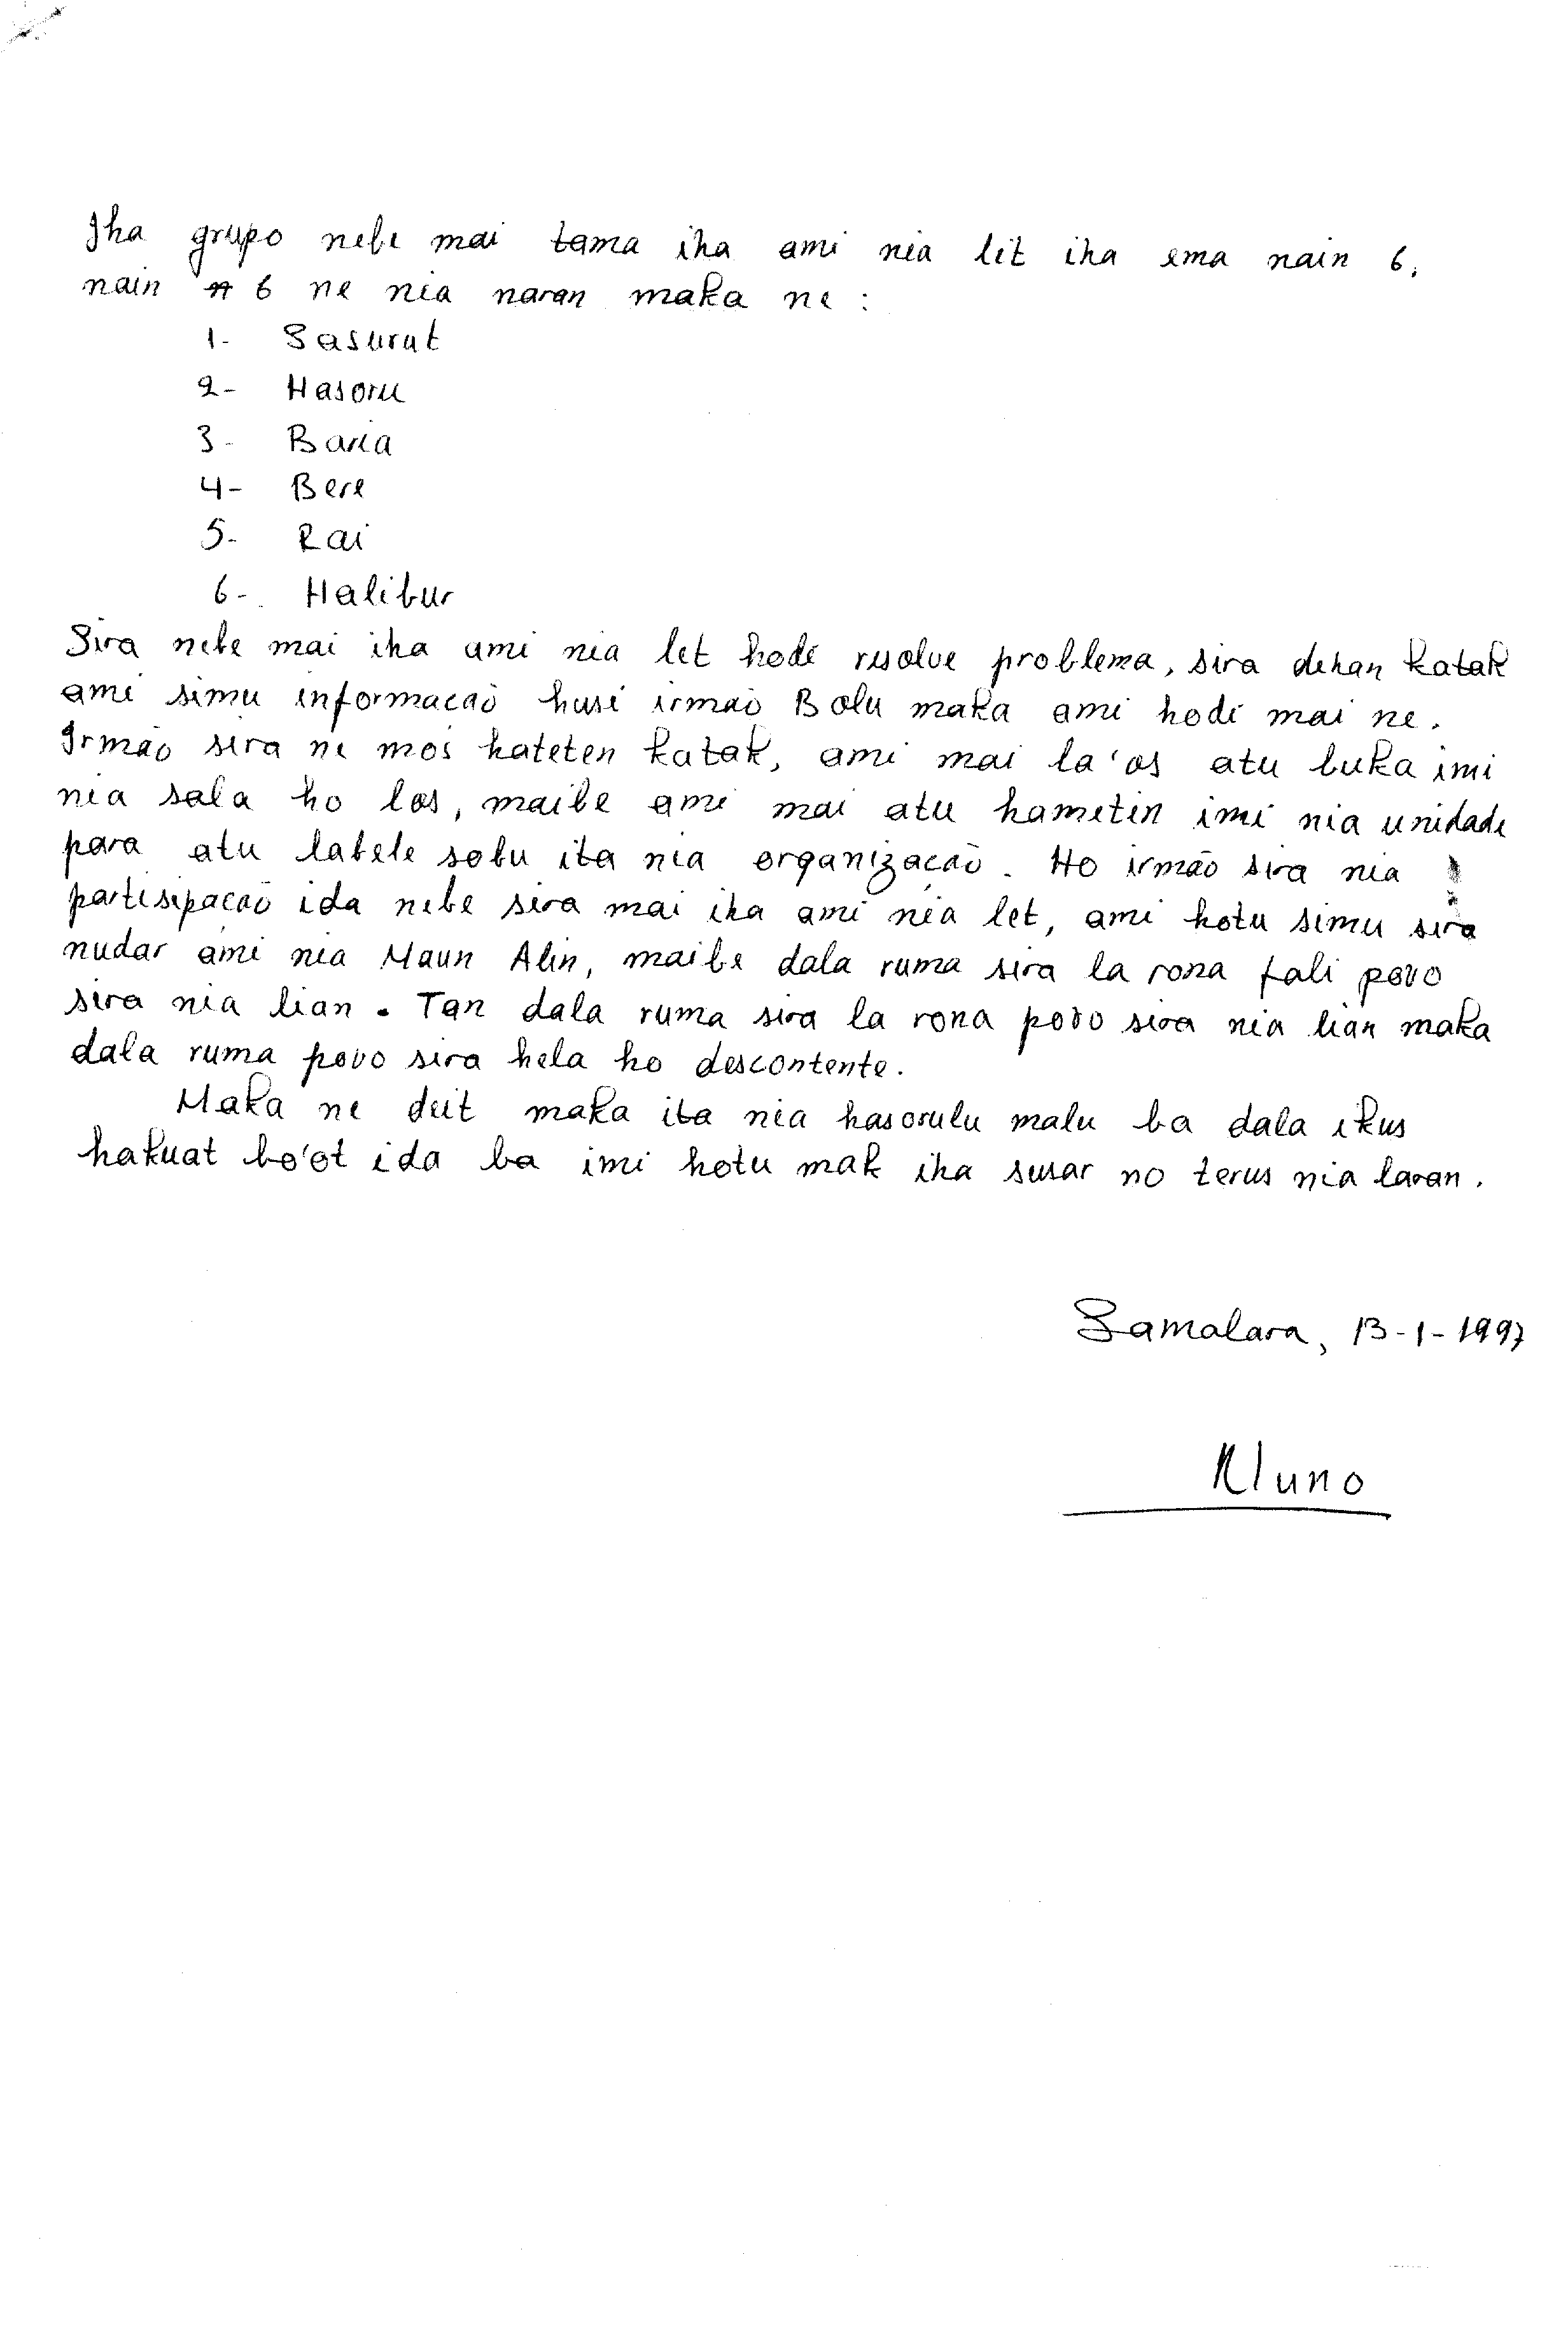 Iha grupo nebe mai tama iha ami nia let iha ema nain 6,
nain 6 ne nia naran maka ne :
1- Sasurut
2- Hasoru
3- Baria
4- Bere
5- Rai
6- Halibur
Sira nebe mai iha ami nia let hodi resolve problema, sira dehan katak
ami simu informacaõ husi irmaõ Bolu maka ami hodi mai ne.
Irmão sira ne mos hateten katak, ami mai la'os atu buka imi
nia sala ho los, maibe ami mai atu hametin imi nia unidade
para atu labele sobu ita nia organizaçaõ. Ho irmão sira nia
partisipaçaõ ida nebe sira mai iha ami nia let, ami hotu simu sira
nudar ami nia Maun Alin, maibe dala ruma sira la rona fali povo
sira nia lian. Tan dala ruma sira la rona povo sira nia lian maka
dala ruma povo sira hela ho descontente.
Maka ne deit maka ita nia hasorulu malu ba dala ikus
hakuat bo'ot ida ba imi hotu mak iha susar no terus nia laran.
Samalara, 13-1-1997
Nuno